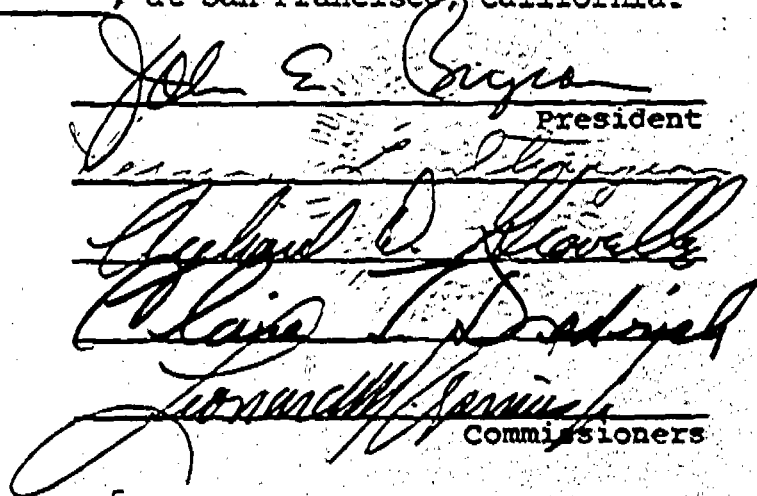 , at San Francisco, California.
John E. Bryson
President
Vernon L. Sturgeon
Richard D. Gravelle
Claire T. Dedrick
Leonard M. Grimes Jr.
Commissioners